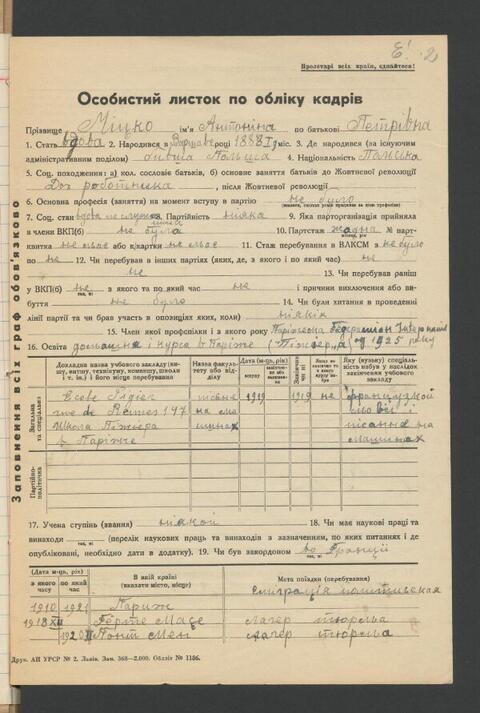 Пролетарі всіх країн, єднайтеся!
Особистий листок по обліку кадрів
Прізвище Міцко ім'я Антоніна по батькові Петрівна
1. Стать вдова 2. Народився в Варшаве році 1888 I міс. 3. Де народився (за існуючим
адміністративним поділом) бивша Польща 4. Національність Польська
5. Соц. походження: а) кол. сословіє батьків, б) основне заняття батьків до Жовтневої революції
роботніка, після Жовтневої революції
6. Основна професія (заняття) на момент вступу в партію не було
7. Соц. стан вдова 8. Партійність ніяка 9. Яка парторганізація прийняла
в члени ВКП(б) не була 10. Партстаж жадна № парт-
квитка не має або к/картки не має 11. Стаж перебування в ВЛКСМ з не було
по не 12. Чи перебував в інших партіях (яких, де, з якого і по який час) не
не 13. Чи перебував раніш
у ВКП(б) не з якого та по який час не і причини виключення або ви-
буття не було 14. Чи були хитання в проведенні
лінії партії та чи брав участь в опозиціях яких, коли) ніяких
15. Член якої профспілки і з якого року
16. Освіта домашня і курса в Паріже (Піжьера) 1925 року
Докладна назва учбового закладу (ви-
шу, втузу, технікуму, комвишу, школи
і т. ін.) і його місце перебування
Назва факуль-
тету або від-
ділу
Дата (м-ць, рік)
вступу
Закінчив
чи ні
Яку (вузьку) спеціаль-
ність набув в наслідок
закінчення учбового
закладу
Загальна
та спеціальна
Ecole Pigier 1919 1919 не французской
rue de Rennes 147
Школа Піжьера писання на
в Паріже машинах
Партійно-
політична
17. Учена ступінь (звання) ніякой 18. Чи має наукові праці та
винаходи (перелік наукових праць та винаходів з зазначенням, по яких питаннях і де
опубліковані, необхідно дати в додатку). 19. Чи був закордоном во Франції
Дата (м-ць, рік)
з якого
часу
по який
час
В якій країні
(вказати місто, місце)
Мета поїздки (перебування)
Еміграція політическая
1910 1921 Париж
1918 XII Ферте Масе Лагер тюрьма
1920 II Лагер тюрьма
Друк. АН УРСР № 2. Львів. Зам. 368—2.000. Обліліт № 1156.
Заповнення всіх граф обов'язково